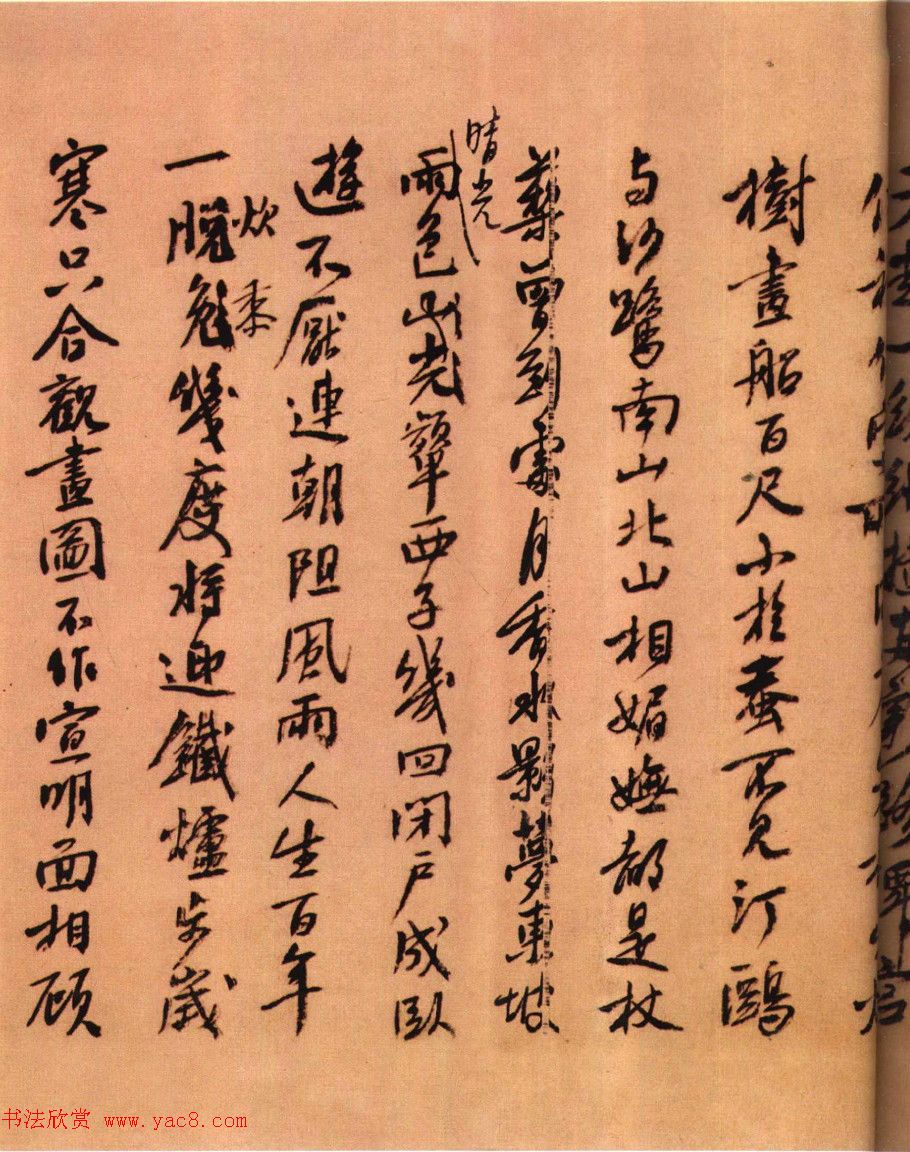 樹畫船百尺小於蚕不見汀鷗
与沙鷺南山北山相媚嫵都是杖
藜曾到處月香水影夢東坡
晴光
雨色山光顰西子幾回閉户成臥
遊不厭連朝阻風雨人生百年
炊黍
一脱兔幾度將迎鐵爐步歲
寒只合觀畫圖不作宣明面相顾
书法欣赏 www.yac8.com